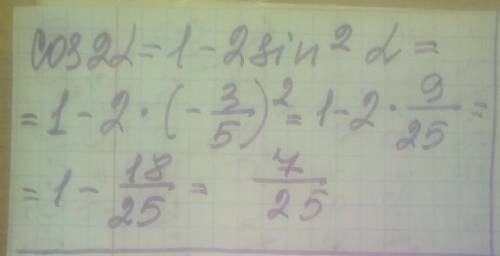 cos2α=1-2sin² α=
=1-2·(-3/5)²=1-2·9/25=
=1-18/25= 7/25